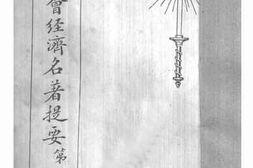 會經濟名著提要第